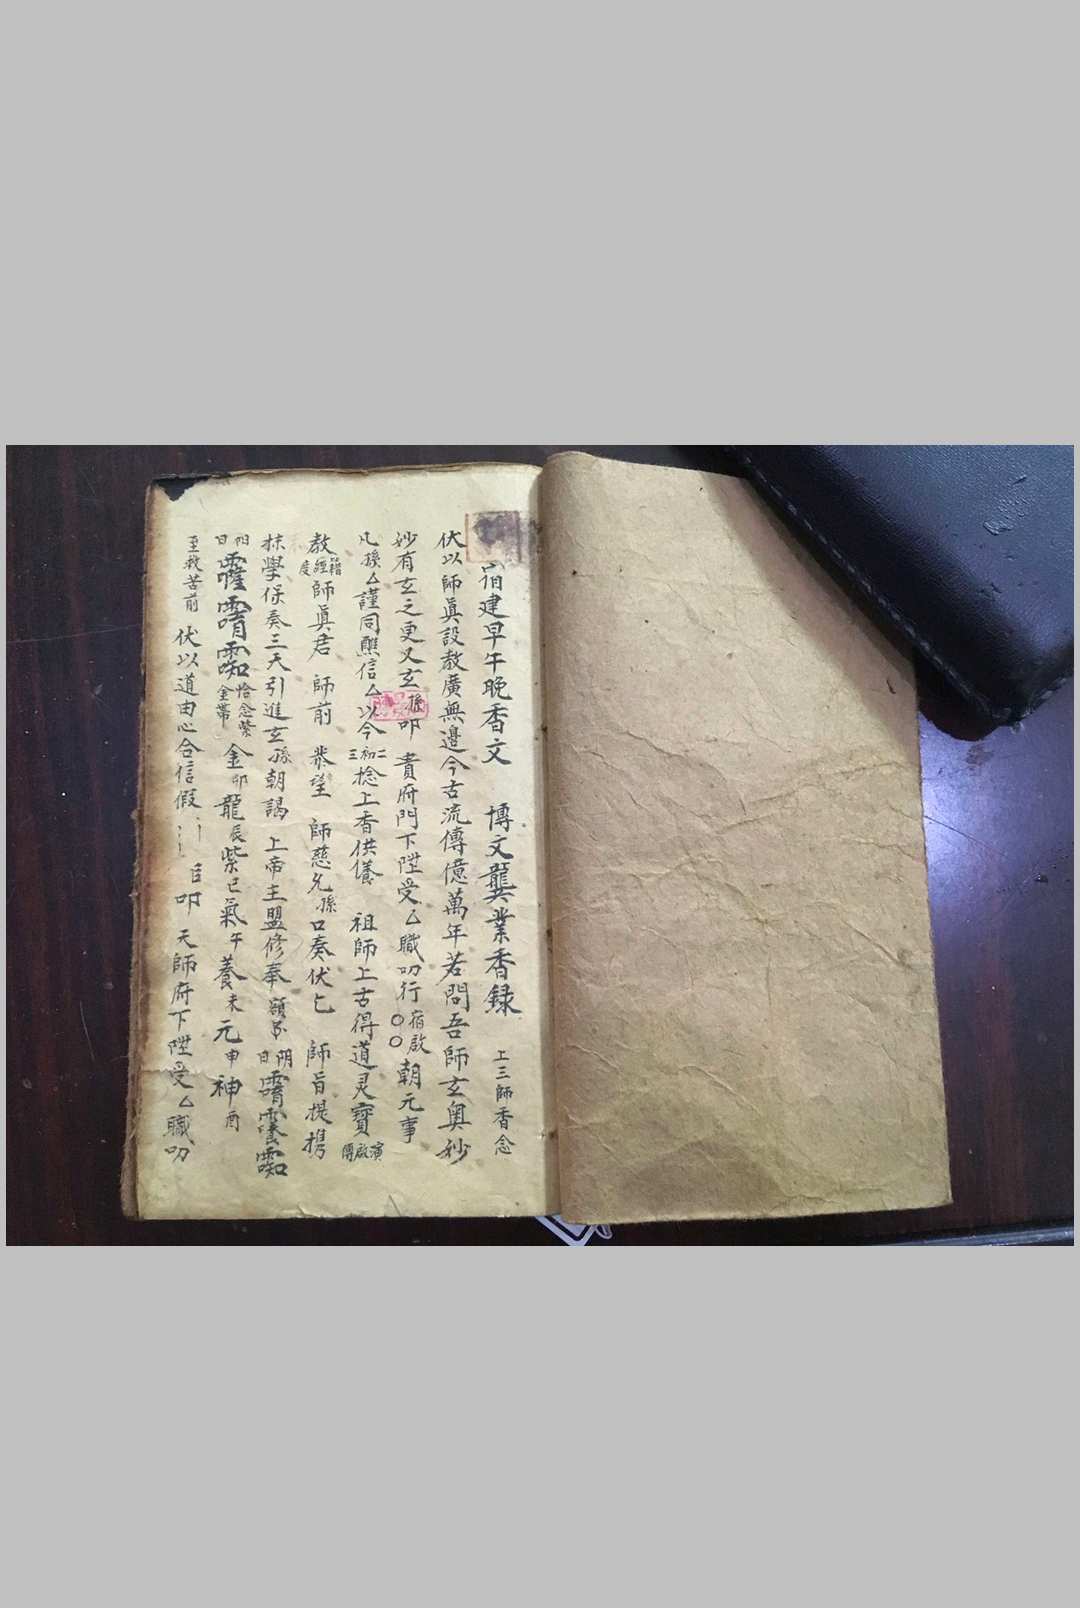 宿建早午晚香文 博文龔業香録 上三師香念
伏以師眞設教廣無邊今古流傳億萬年若問吾師玄奥妙
妙有玄之更又玄孫叩 貴府門下陞受厶職叨行宿啟〇〇朝元事
凡孫厶謹同醮信厶以今初二三捻上香供養 祖師上古得道灵寶演啟傳
教籍經度師眞君 師前 恭望 師慈允孫口奏伏乞 師旨提携
末學保奏三天引進玄孫朝謁 上帝主盟修奉
恰念紫金帶 金卯龍辰紫巳氣午養未元申神酉
至救苦前 伏以道由心合信假 臣叩 天師府下陞受厶職叨